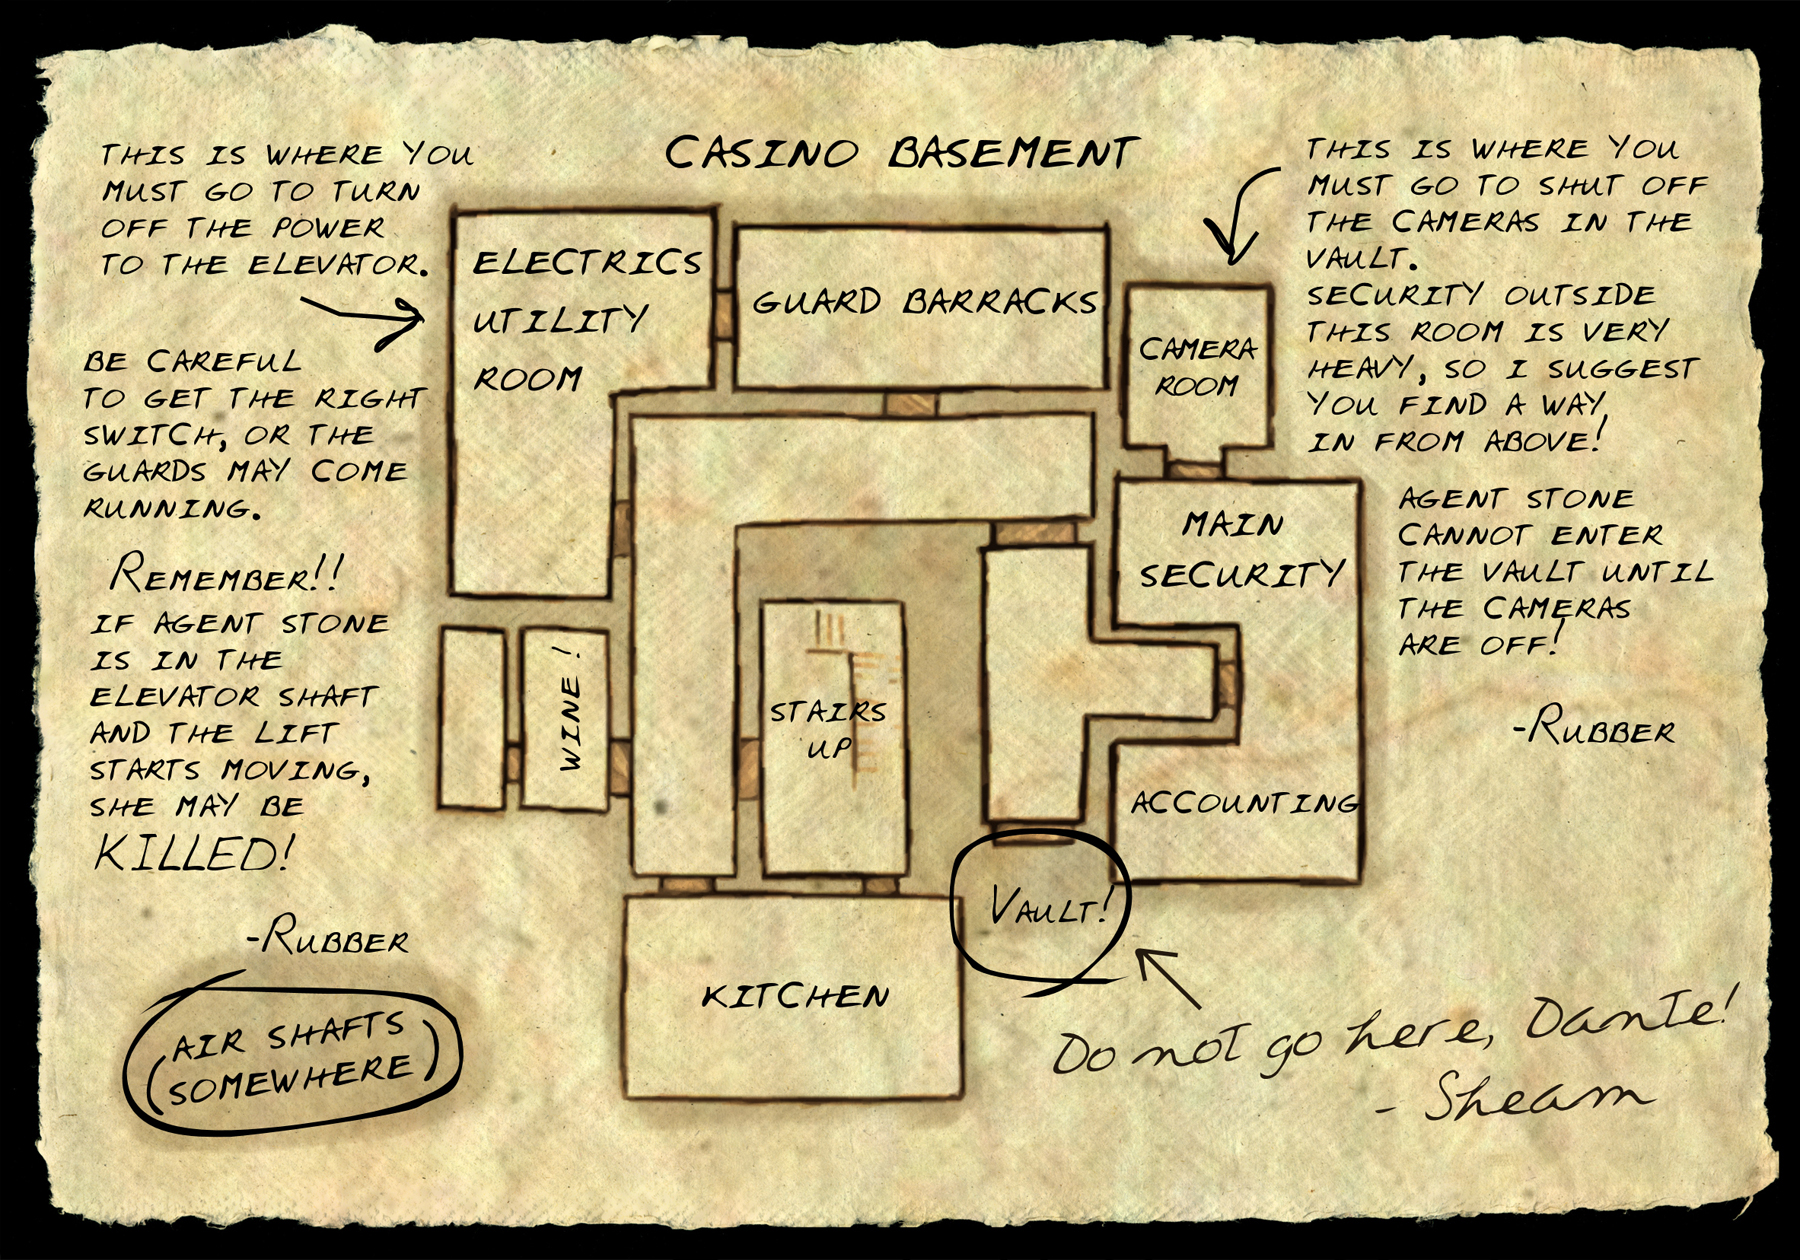 CASINO BASEMENT
THIS IS WHERE YOU
MUST GO TO TURN
OFF THE POWER
TO THE ELEVATOR.
BE CAREFUL
TO GET THE RIGHT
SWITCH, OR THE
GUARDS MAY COME
RUNNING.
REMEMBER!!
IF AGENT STONE
IS IN THE
ELEVATOR SHAFT
AND THE LIFT
STARTS MOVING,
SHE MAY BE
KILLED!
-RUBBER
(AIR SHAFTS
SOMEWHERE)
ELECTRICS
UTILITY
ROOM
GUARD BARRACKS
CAMERA
ROOM
MAIN
SECURITY
WINE!
STAIRS
UP
ACCOUNTING
VAULT!
KITCHEN
THIS IS WHERE YOU
MUST GO TO SHUT OFF
THE CAMERAS IN THE
VAULT.
SECURITY OUTSIDE
THIS ROOM IS VERY
HEAVY, SO I SUGGEST
YOU FIND A WAY
IN FROM ABOVE!
AGENT STONE
CANNOT ENTER
THE VAULT UNTIL
THE CAMERAS
ARE OFF!
-RUBBER
Do not go here, Dante!
- Sheam